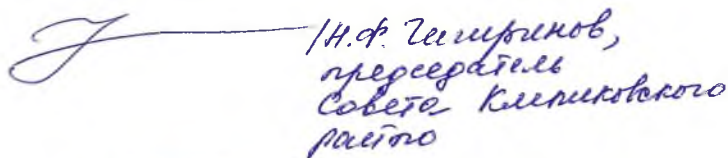 /Н.Ф.
председатель
Совета Клепиковского
райпо